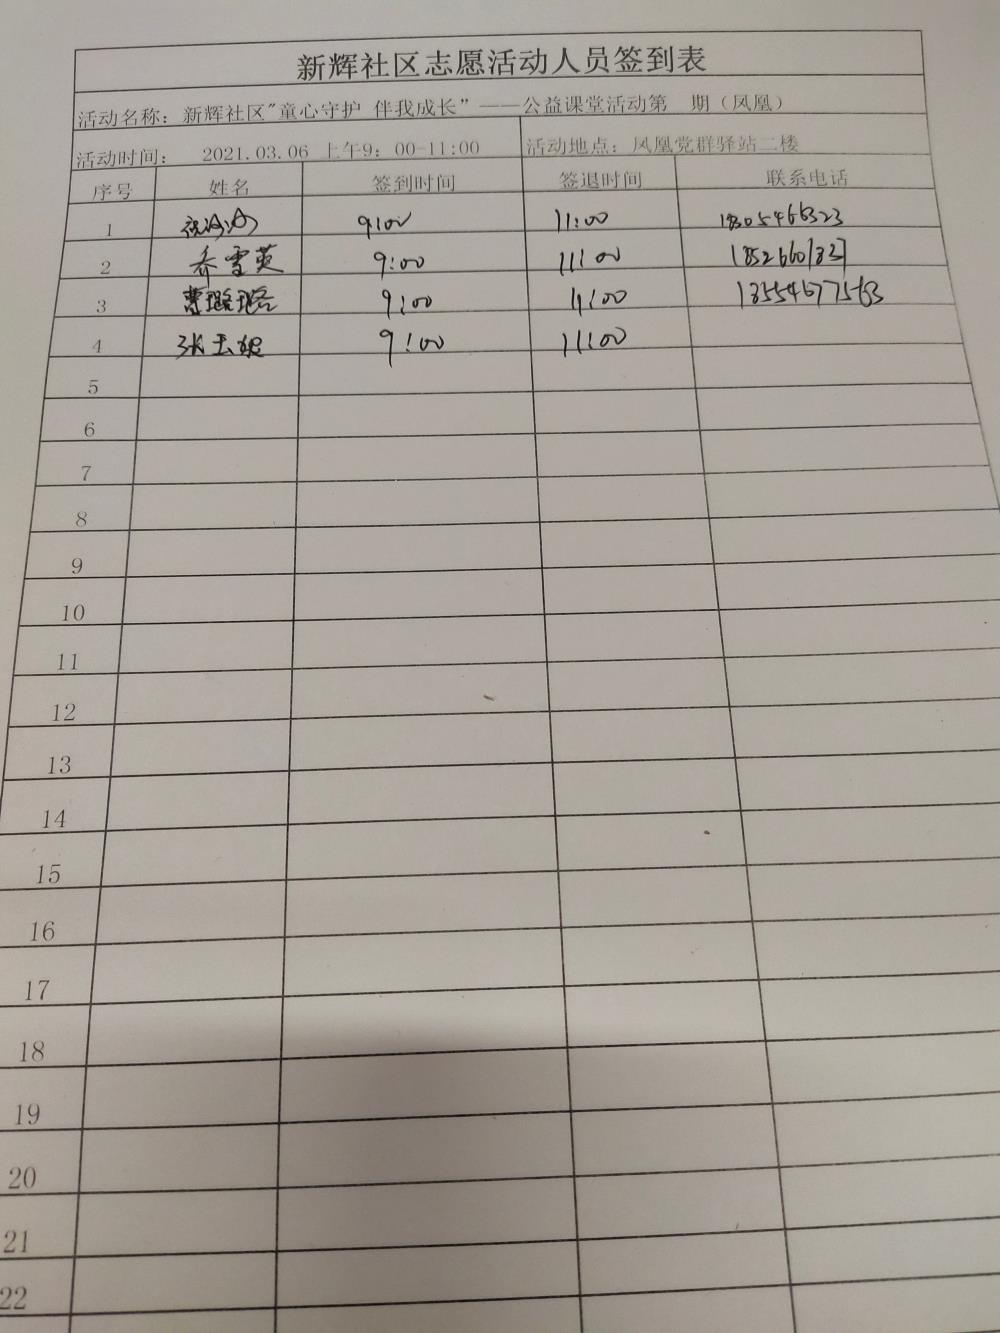 新辉社区志愿活动人员签到表
活动名称：新辉社区"童心守护 伴我成长”——公益课堂活动第 期（凤凰）
活动时间： 2021.03.06 上午9：00-11:00 活动地点：凤凰党群驿站二楼
序号 姓名 签到时间 签退时间 联系电话
1 9:00 11:00
2 乔雪英 9:00 11:00
3 曹璐璐 9:00 11:00 13554677563
4 张玉妮 9:00 11:00
5
6
7
8
9
10
11
12
13
14
15
16
17
18
19
20
21
22